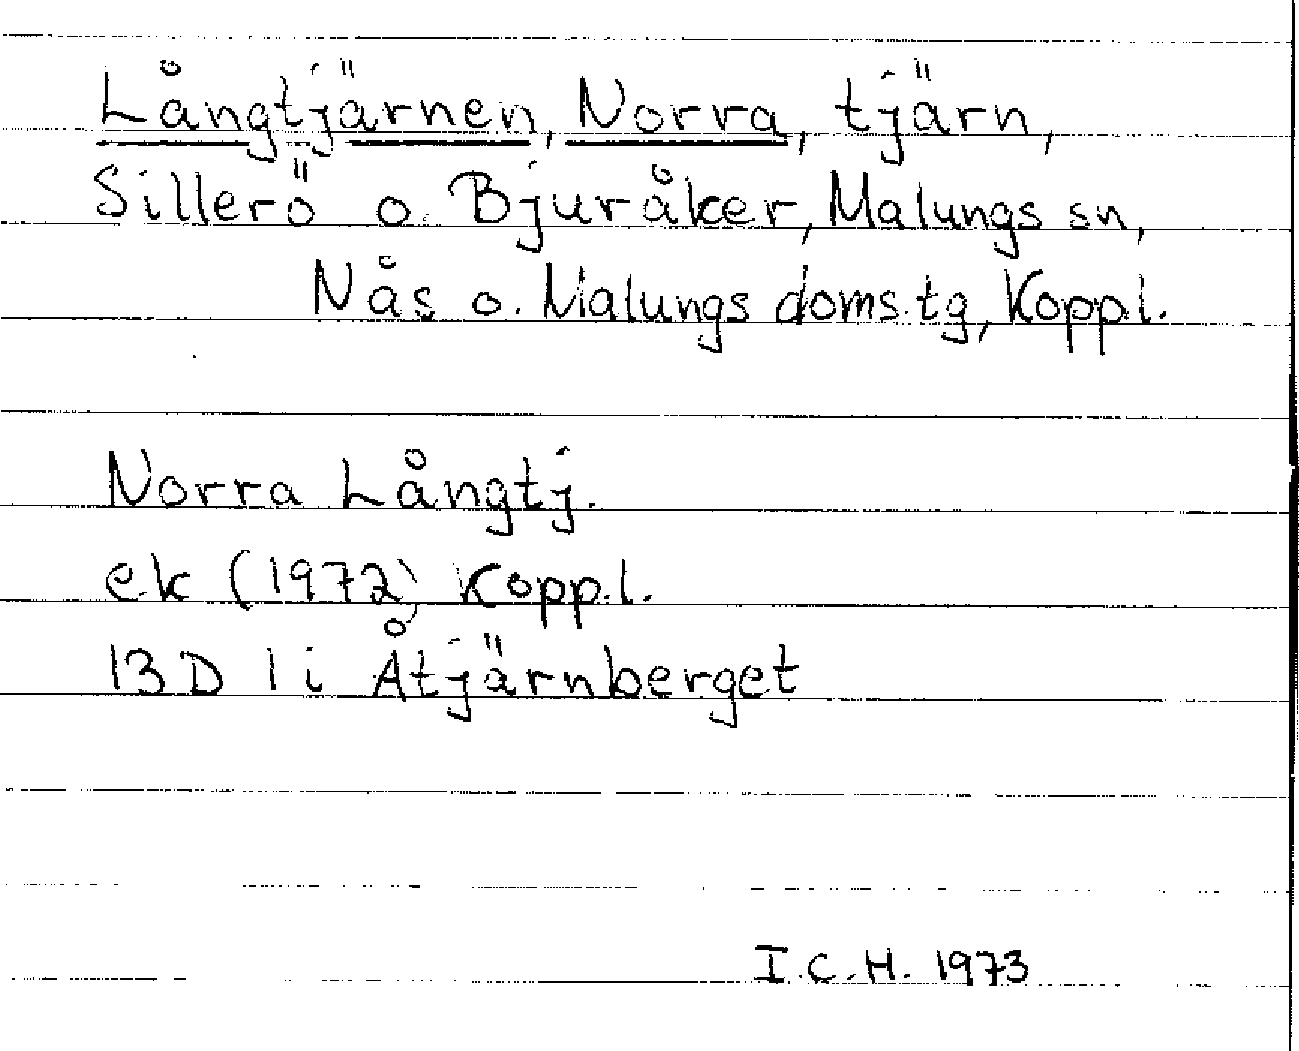 Långtjärnen, Norra, tjärn,
Sillerö o. Bjuråker, Malungs sn,
Nås o. Malungs doms.tg, Kopp.l.
Norra Långtj.
ek (1972) Kopp.l.
13 D 1 i Åtjärnberget
I.C.H. 1973